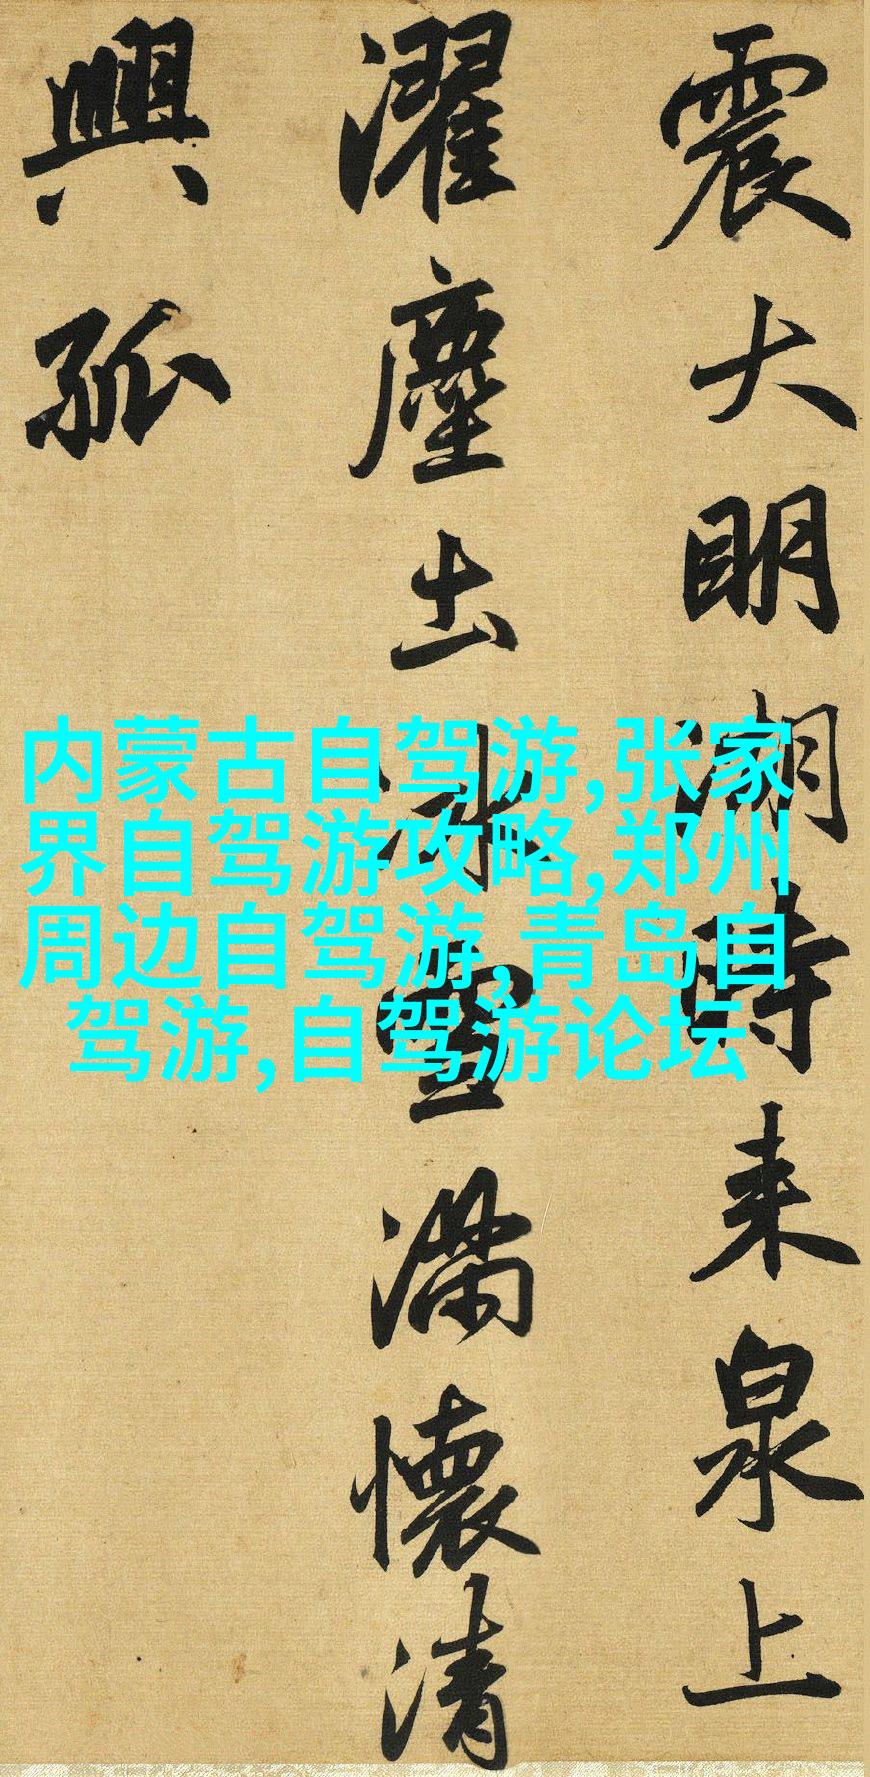 震大明湖時来泉上
濯塵土冰雪滿懷清
興孤
内蒙古自驾游,张家
界自驾游攻略,郑州
周边自驾游,青岛自
驾游,自驾游论坛